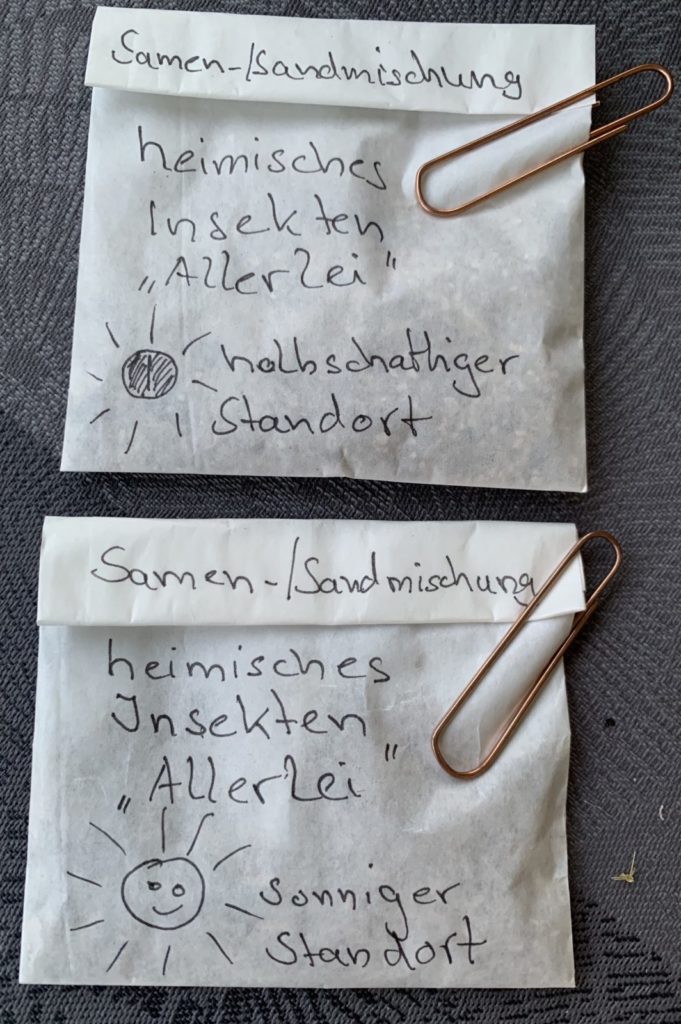 Samen-/Sandmischung
heimisches
Insekten
„Allerlei"
halbschattiger
Standort
Samen-/Sandmischung
heimisches
Insekten
„Allerlei"
sonniger
Standort